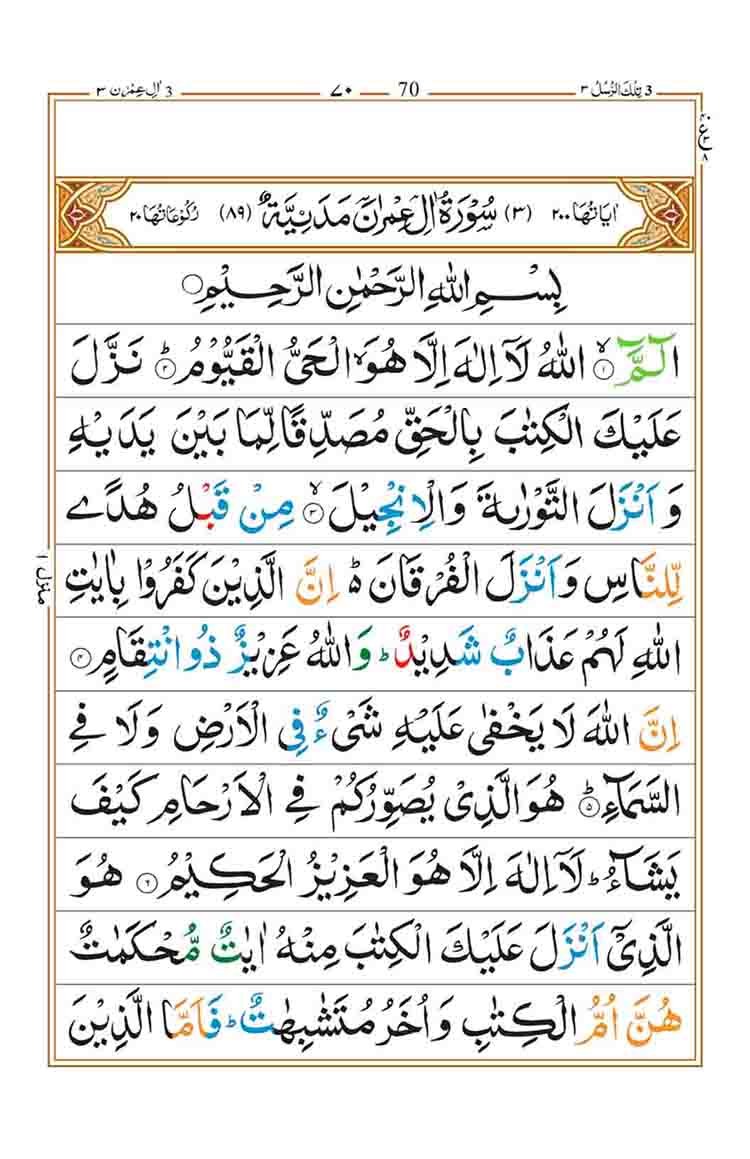 تِلْكَ الرُّسُلُ ٣ 3 70 ٧٠ 3 اٰلِ عِمْرٰن ٣
اٰيَاتُهَا ٢٠٠ (٣) سُوْرَةُ اٰلِ عِمْرٰنَ مَدَنِيَّةٌ (٨٩) رُكُوْعَاتُهَا ٢٠
بِسْمِ اللّٰهِ الرَّحْمٰنِ الرَّحِيْمِ
الٓمّٓ ۙ﴿١﴾ اللّٰهُ لَاۤ اِلٰهَ اِلَّا هُوَ ۙ الْحَىُّ الْقَيُّوْمُ ؕ﴿٢﴾ نَزَّلَ
عَلَيْكَ الْكِتٰبَ بِالْحَقِّ مُصَدِّقًا لِّمَا بَيْنَ يَدَيْهِ
وَاَنْزَلَ التَّوْرٰىةَ وَالْاِنْجِيْلَ ۙ﴿٣﴾ مِنْ قَبْلُ هُدًى
لِّلنَّاسِ وَاَنْزَلَ الْفُرْقَانَ ؕ اِنَّ الَّذِيْنَ كَفَرُوْا بِاٰيٰتِ
اللّٰهِ لَهُمْ عَذَابٌ شَدِيْدٌ ؕ وَاللّٰهُ عَزِيْزٌ ذُو انْتِقَامٍ ﴿٤﴾
اِنَّ اللّٰهَ لَا يَخْفٰى عَلَيْهِ شَىْءٌ فِى الْاَرْضِ وَلَا فِى
السَّمَآءِ ؕ﴿٥﴾ هُوَ الَّذِىْ يُصَوِّرُكُمْ فِى الْاَرْحَامِ كَيْفَ
يَشَآءُ ؕ لَاۤ اِلٰهَ اِلَّا هُوَ الْعَزِيْزُ الْحَكِيْمُ ﴿٦﴾ هُوَ
الَّذِىْۤ اَنْزَلَ عَلَيْكَ الْكِتٰبَ مِنْهُ اٰيٰتٌ مُّحْكَمٰتٌ
هُنَّ اُمُّ الْكِتٰبِ وَاُخَرُ مُتَشٰبِهٰتٌ ؕ فَاَمَّا الَّذِيْنَ
منزل ١